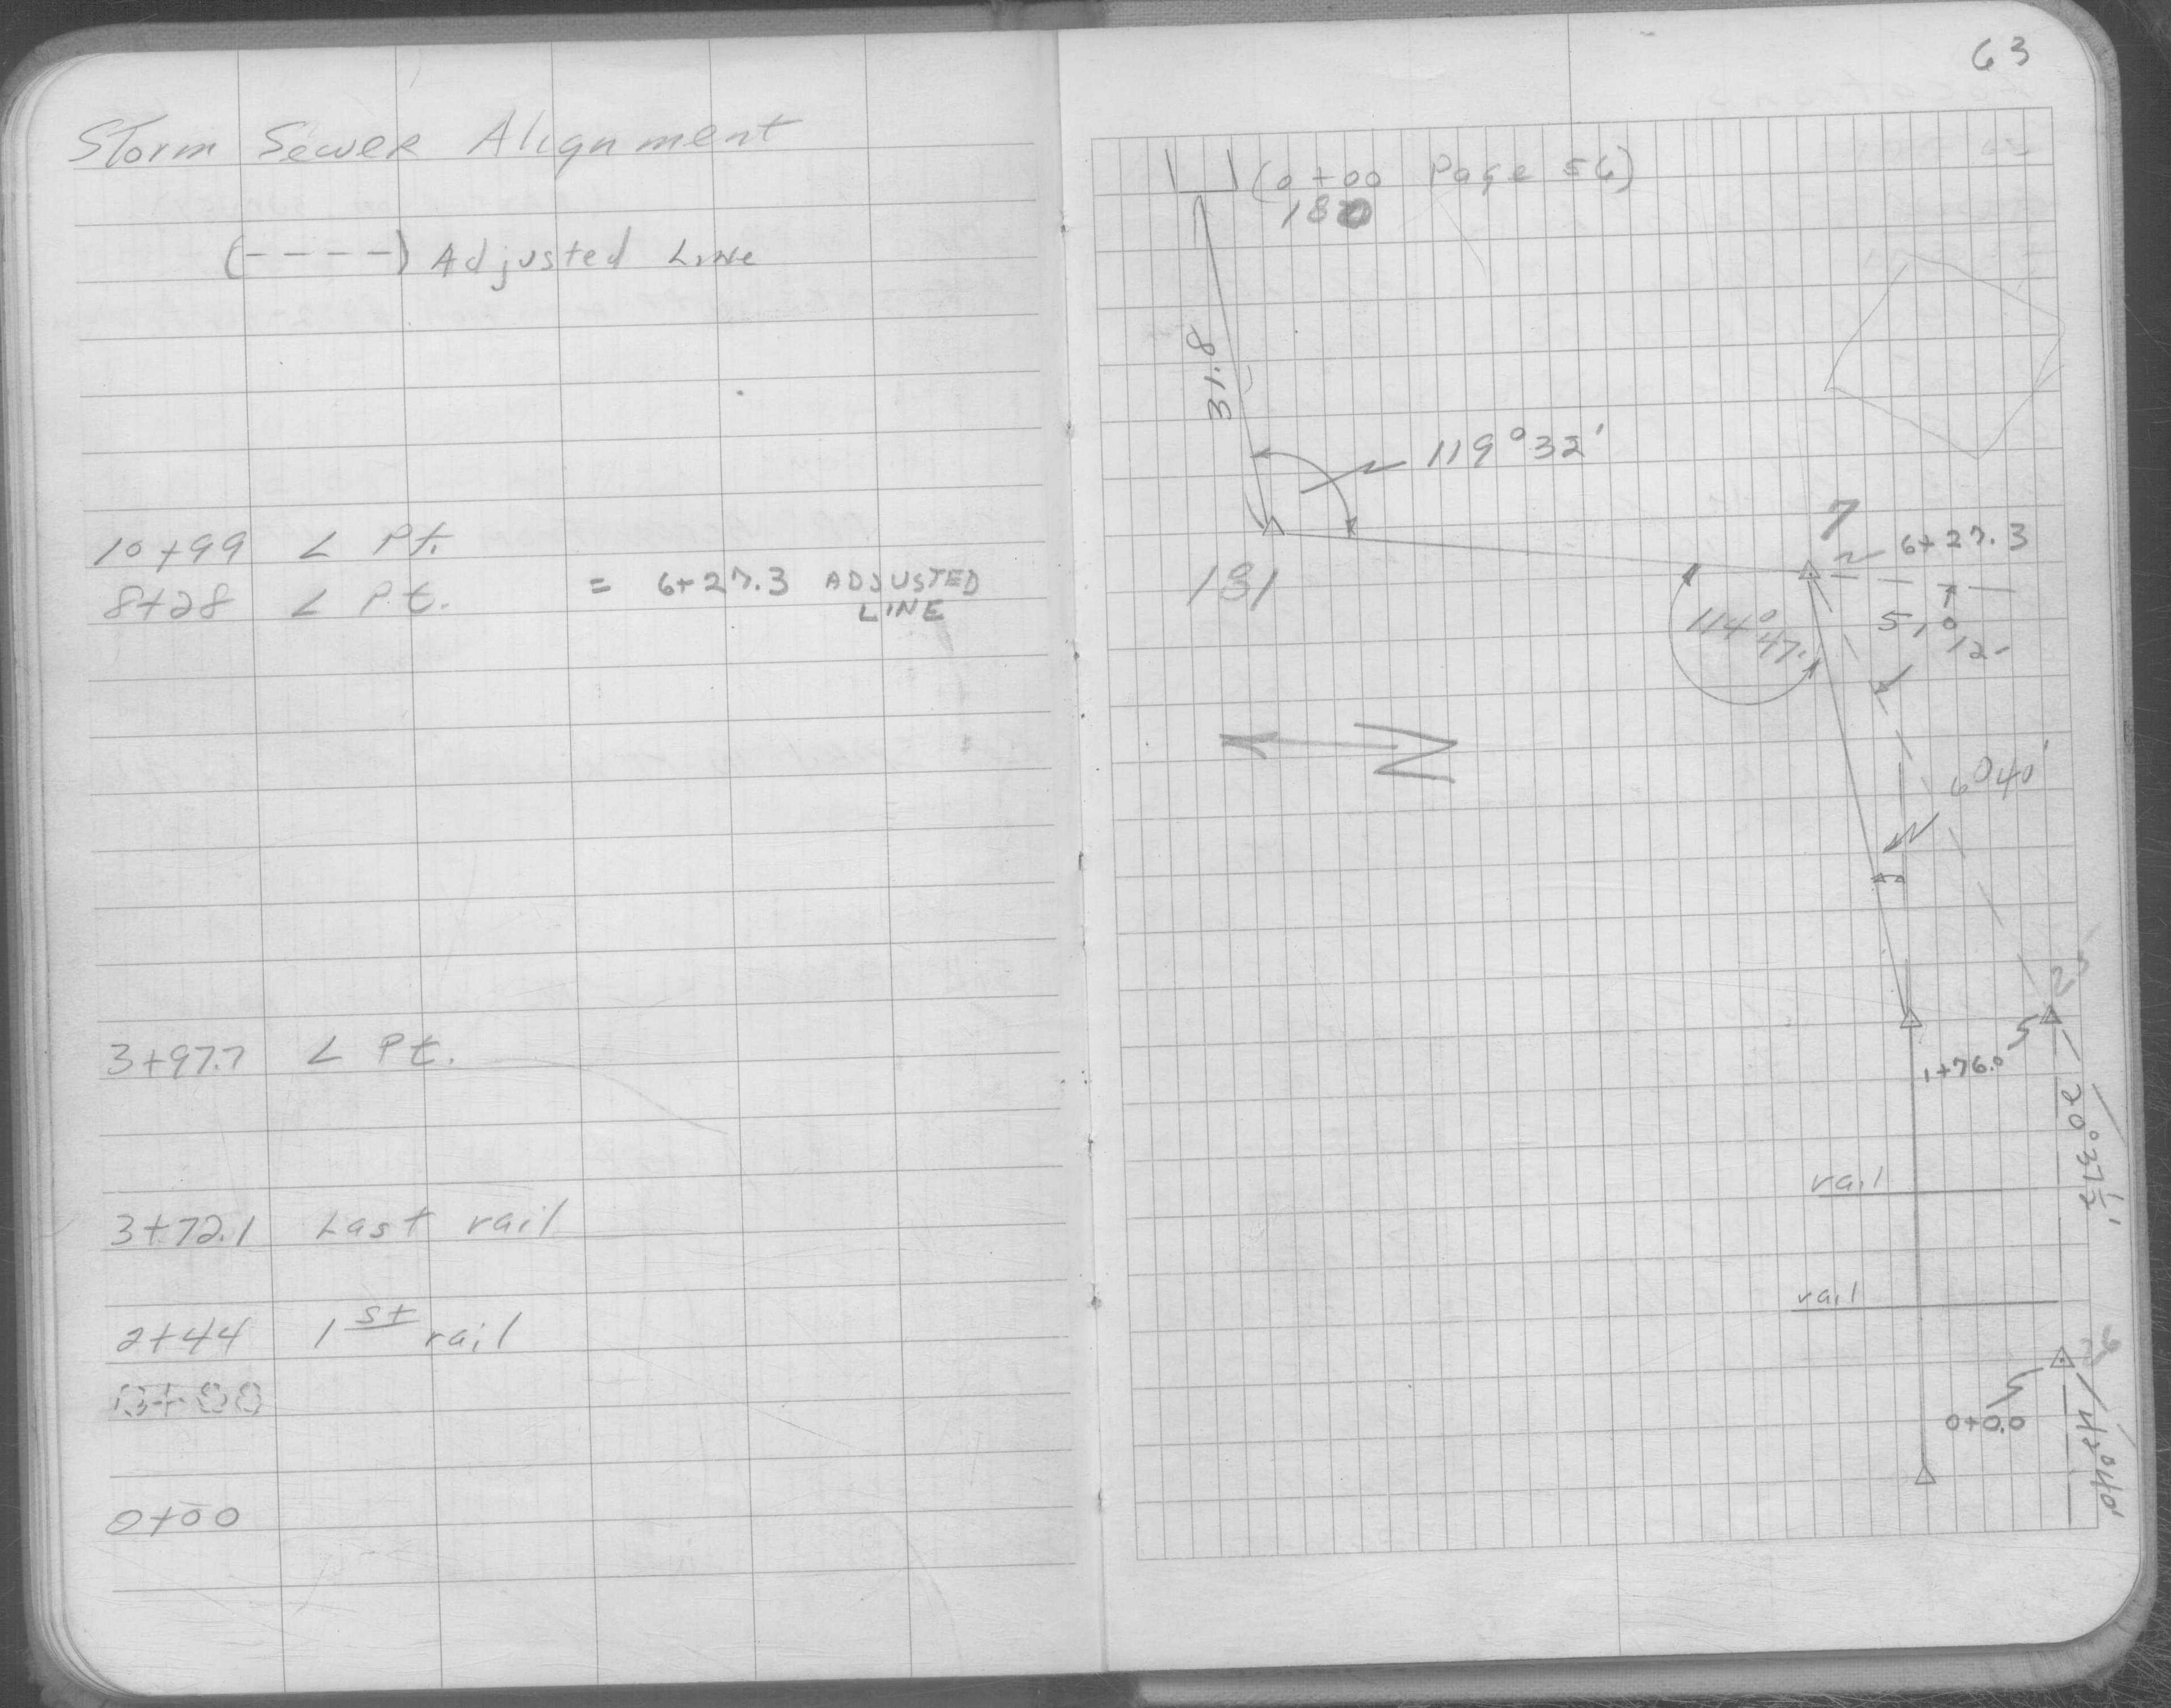 Storm Sewer Alignment
(----) Adjusted Line
10+99 ∠ Pt.
8+28 ∠ Pt. = 6+27.3 ADJUSTED
LINE
3+97.7 ∠ Pt.
3+72.1 Last rail
2+44 1st rail
0+00
0+00
63
(0+00 Page 56)
180
31.8
119°32'
181
7
6+27.3
114°47'
51°12'
N
6°40'
25
1+76.0
20°37½'
rail
rail
26
0+0.0
42°40'